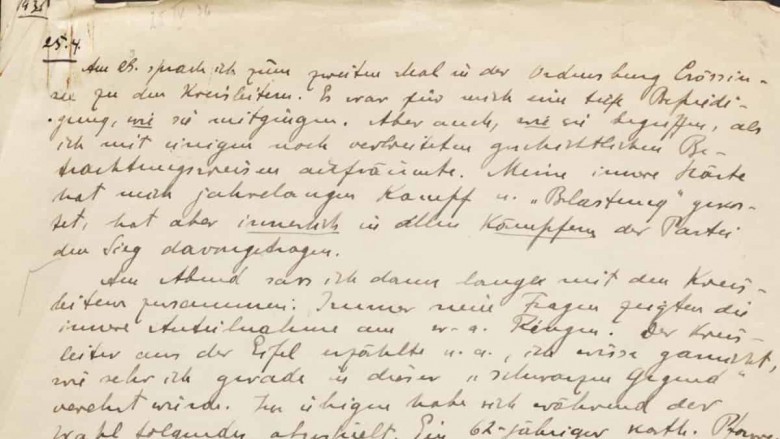 1936
25.4.
Am 23. sprach ich zum zweiten Mal in der Ordensburg Crössin-
see zu den Kreisleitern. Es war für mich eine tiefe Befriedi-
gung, wie sie mitgingen. Aber auch, wie sie begriffen, als
ich mit einigen noch verbreiteten geschichtlichen Be-
trachtungsweisen aufräumte. Meine innere Härte
hat mich jahrelangen Kampf u. „Belastung" gekos-
tet, hat aber innerlich in allen Kämpfern der Partei
den Sieg davongetragen.
Am Abend sass ich dann lange mit den Kreis-
leitern zusammen: Immer neue Fragen zeigten die
innere Anteilnahme am Ringen. Der Kreis-
leiter aus der Eifel erzählte u. a., ich wisse garnicht,
wie sehr ich gerade in dieser „schwarzen Gegend"
verehrt würde. Im übrigen habe sich während der
Wahl folgendes abgespielt. Ein 62-jähriger kath. Pfarrer